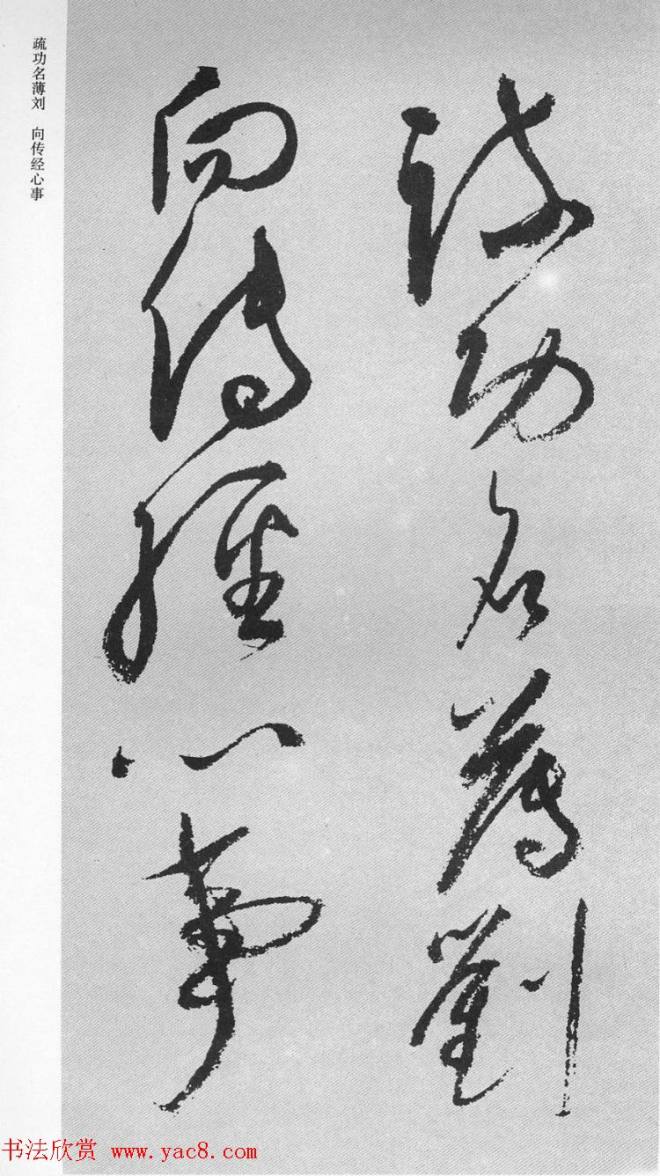 疏功名薄劉
向傳經心事
疏功名薄刘　向传经心事
书法欣赏 www.yac8.com